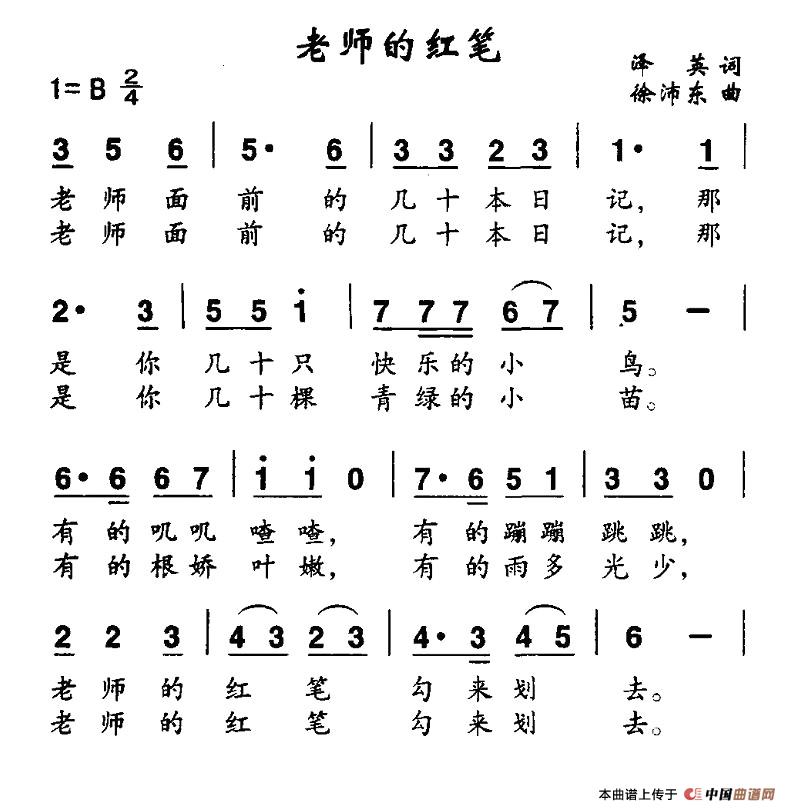 老师的红笔
1=B 2/4
泽 英 词
徐沛东 曲
3 5 6 | 5· 6 | 3 3 2 3 | 1· 1 |
老 师 面 前 的 几 十 本 日 记, 那
老 师 面 前 的 几 十 本 日 记, 那
2· 3 | 5 5 i | 7 7 7 6 7 | 5 — |
是 你 几 十 只 快 乐 的 小 鸟。
是 你 几 十 棵 青 绿 的 小 苗。
6· 6 6 7 | i i 0 | 7· 6 5 1 | 3 3 0 |
有 的 叽 叽 喳 喳, 有 的 蹦 蹦 跳 跳,
有 的 根 娇 叶 嫩, 有 的 雨 多 光 少,
2 2 3 | 4 3 2 3 | 4· 3 4 5 | 6 — |
老 师 的 红 笔 勾 来 划 去。
老 师 的 红 笔 勾 来 划 去。
本曲谱上传于 中国曲谱网